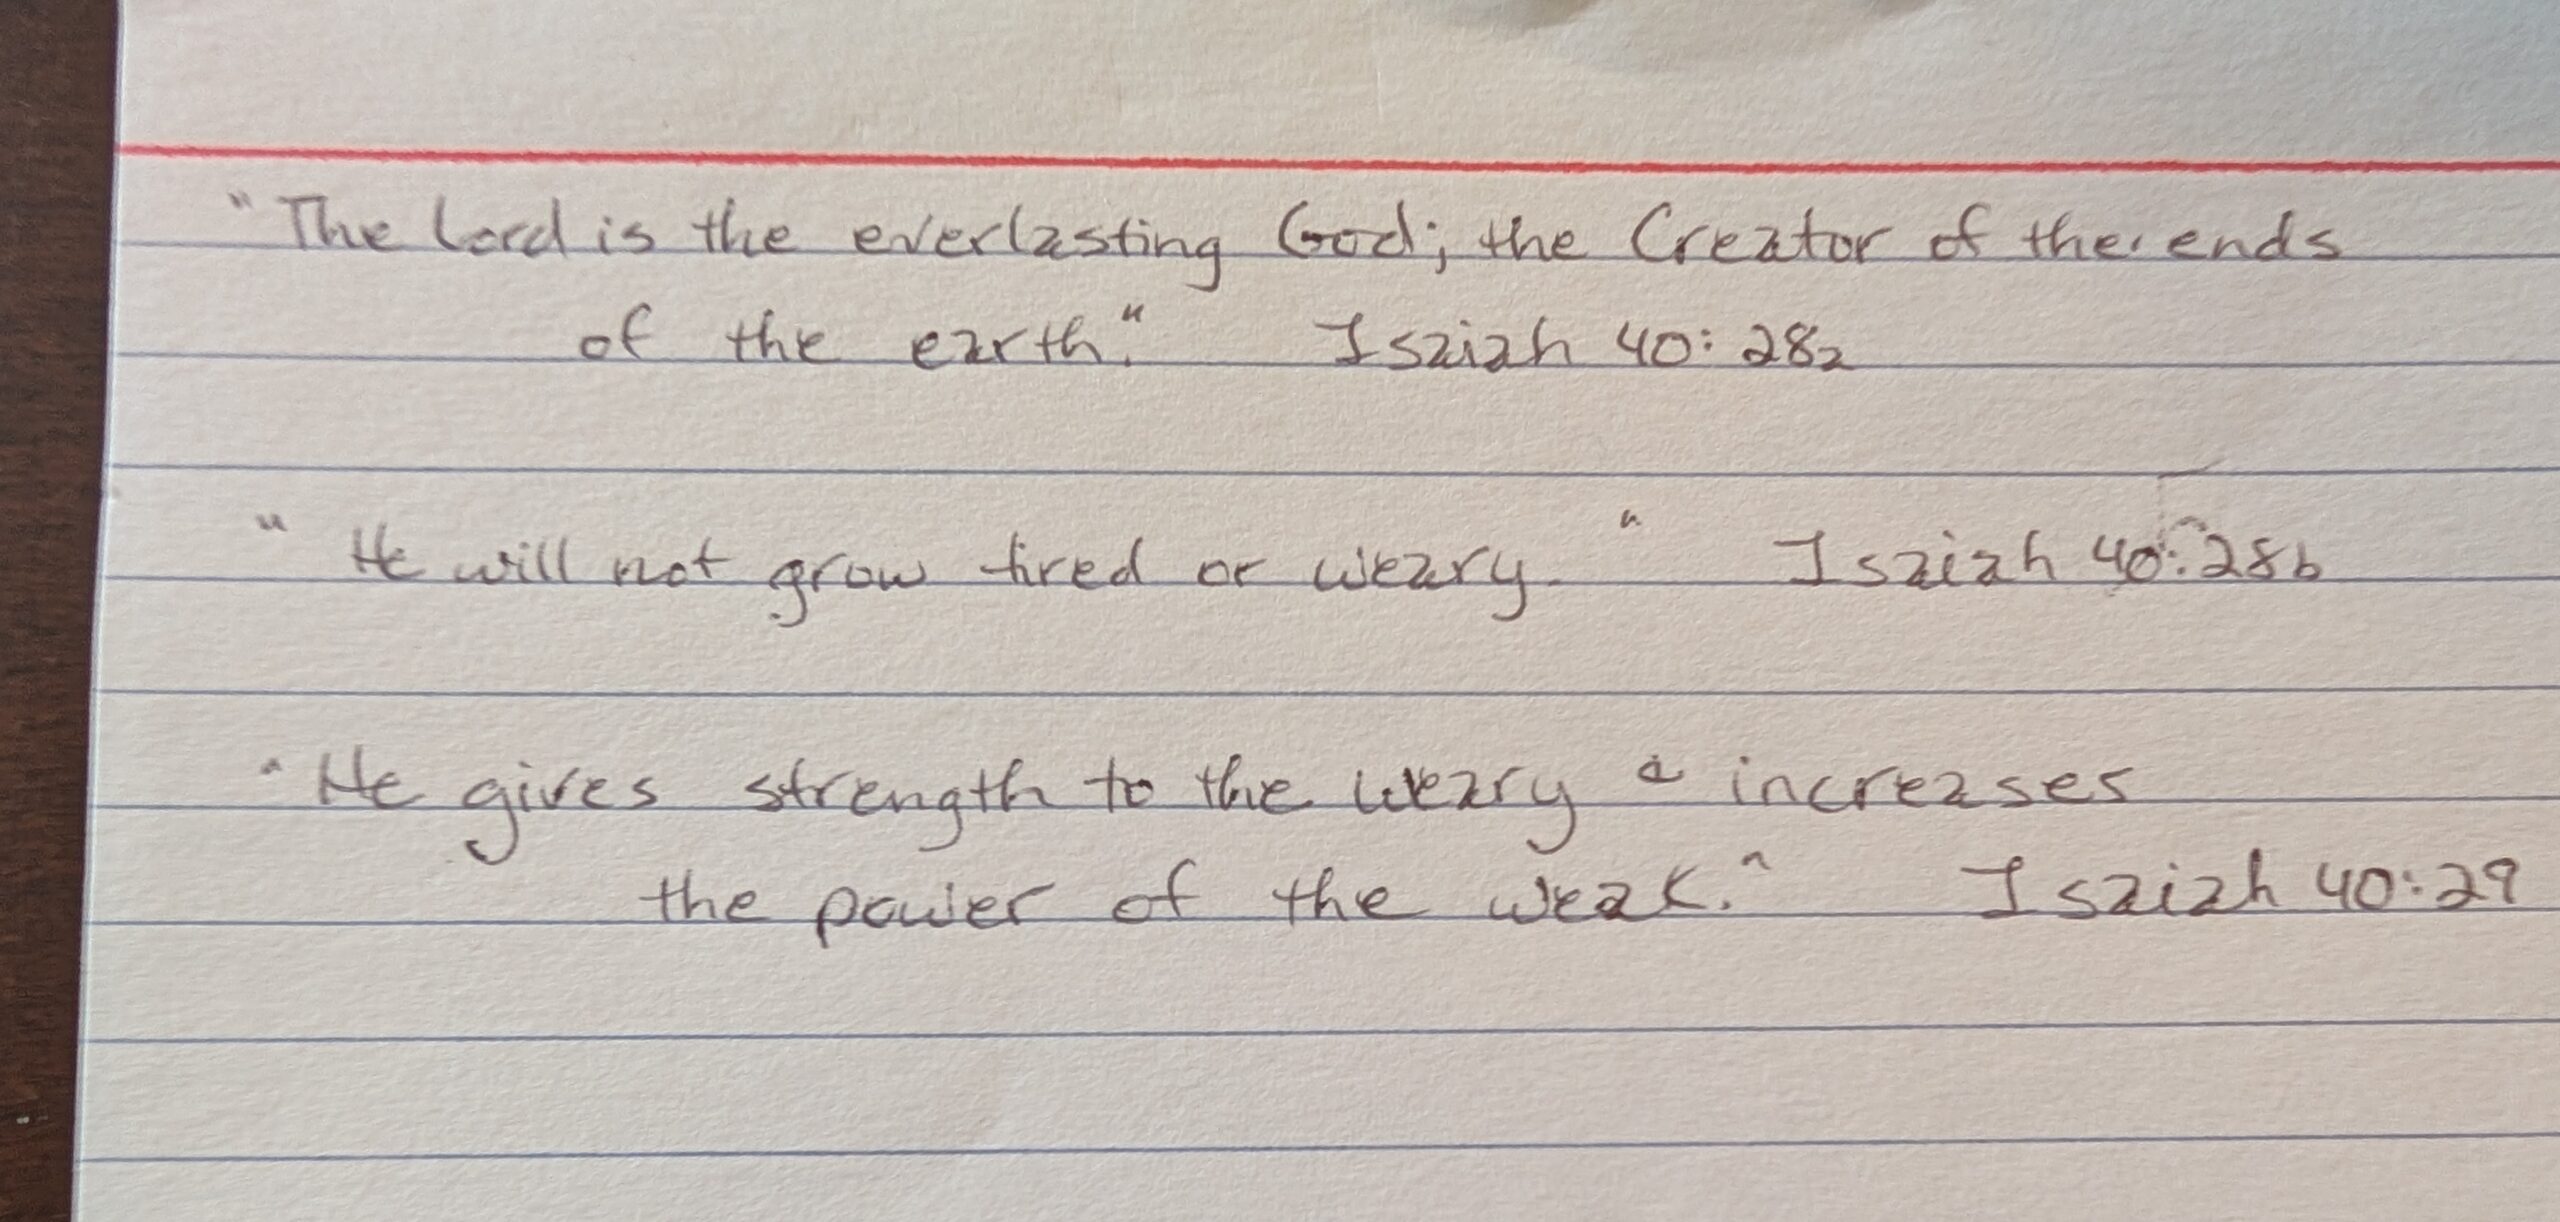 "The Lord is the everlasting God; the Creator of the ends
of the earth." Isaiah 40:28a
"He will not grow tired or weary." Isaiah 40:28b
"He gives strength to the weary & increases
the power of the weak." Isaiah 40:29